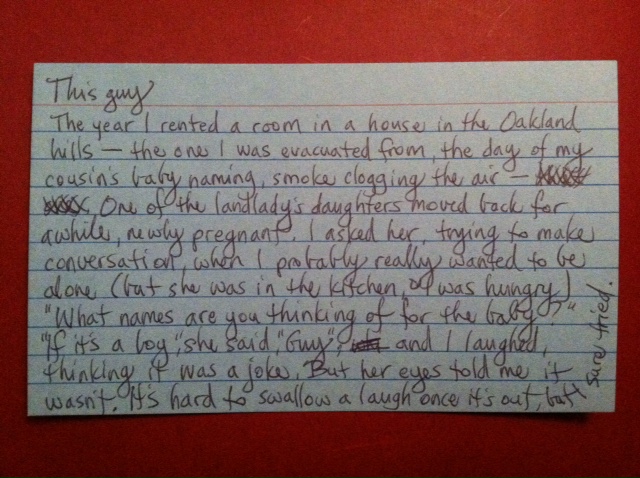 This guy
The year I rented a room in a house in the Oakland
hills — the one I was evacuated from, the day of my
cousin's baby naming, smoke clogging the air —
One of the landlady's daughters moved back for
awhile, newly pregnant. I asked her, trying to make
conversation, when I probably really wanted to be
alone (but she was in the kitchen, & I was hungry)
"What names are you thinking of for the baby?"
"If it's a boy", she said, "Guy", and I laughed,
thinking it was a joke. But her eyes told me it
wasn't. It's hard to swallow a laugh once it's out, but I
sure tried.